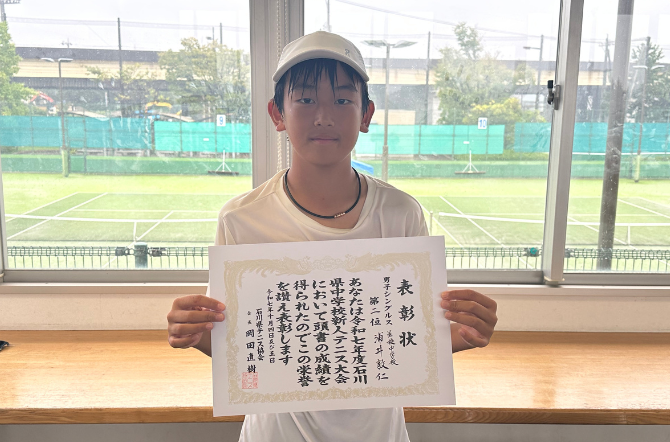 表彰状
男子シングルス
第二位
あなたは令和七年度石川
県中学校新人テニス大会
において頭書の成績を
得られたのでこの栄誉
を讃え表彰します
令和七年十月四日及び五日
石川県テニス協会
会長 岡田直樹